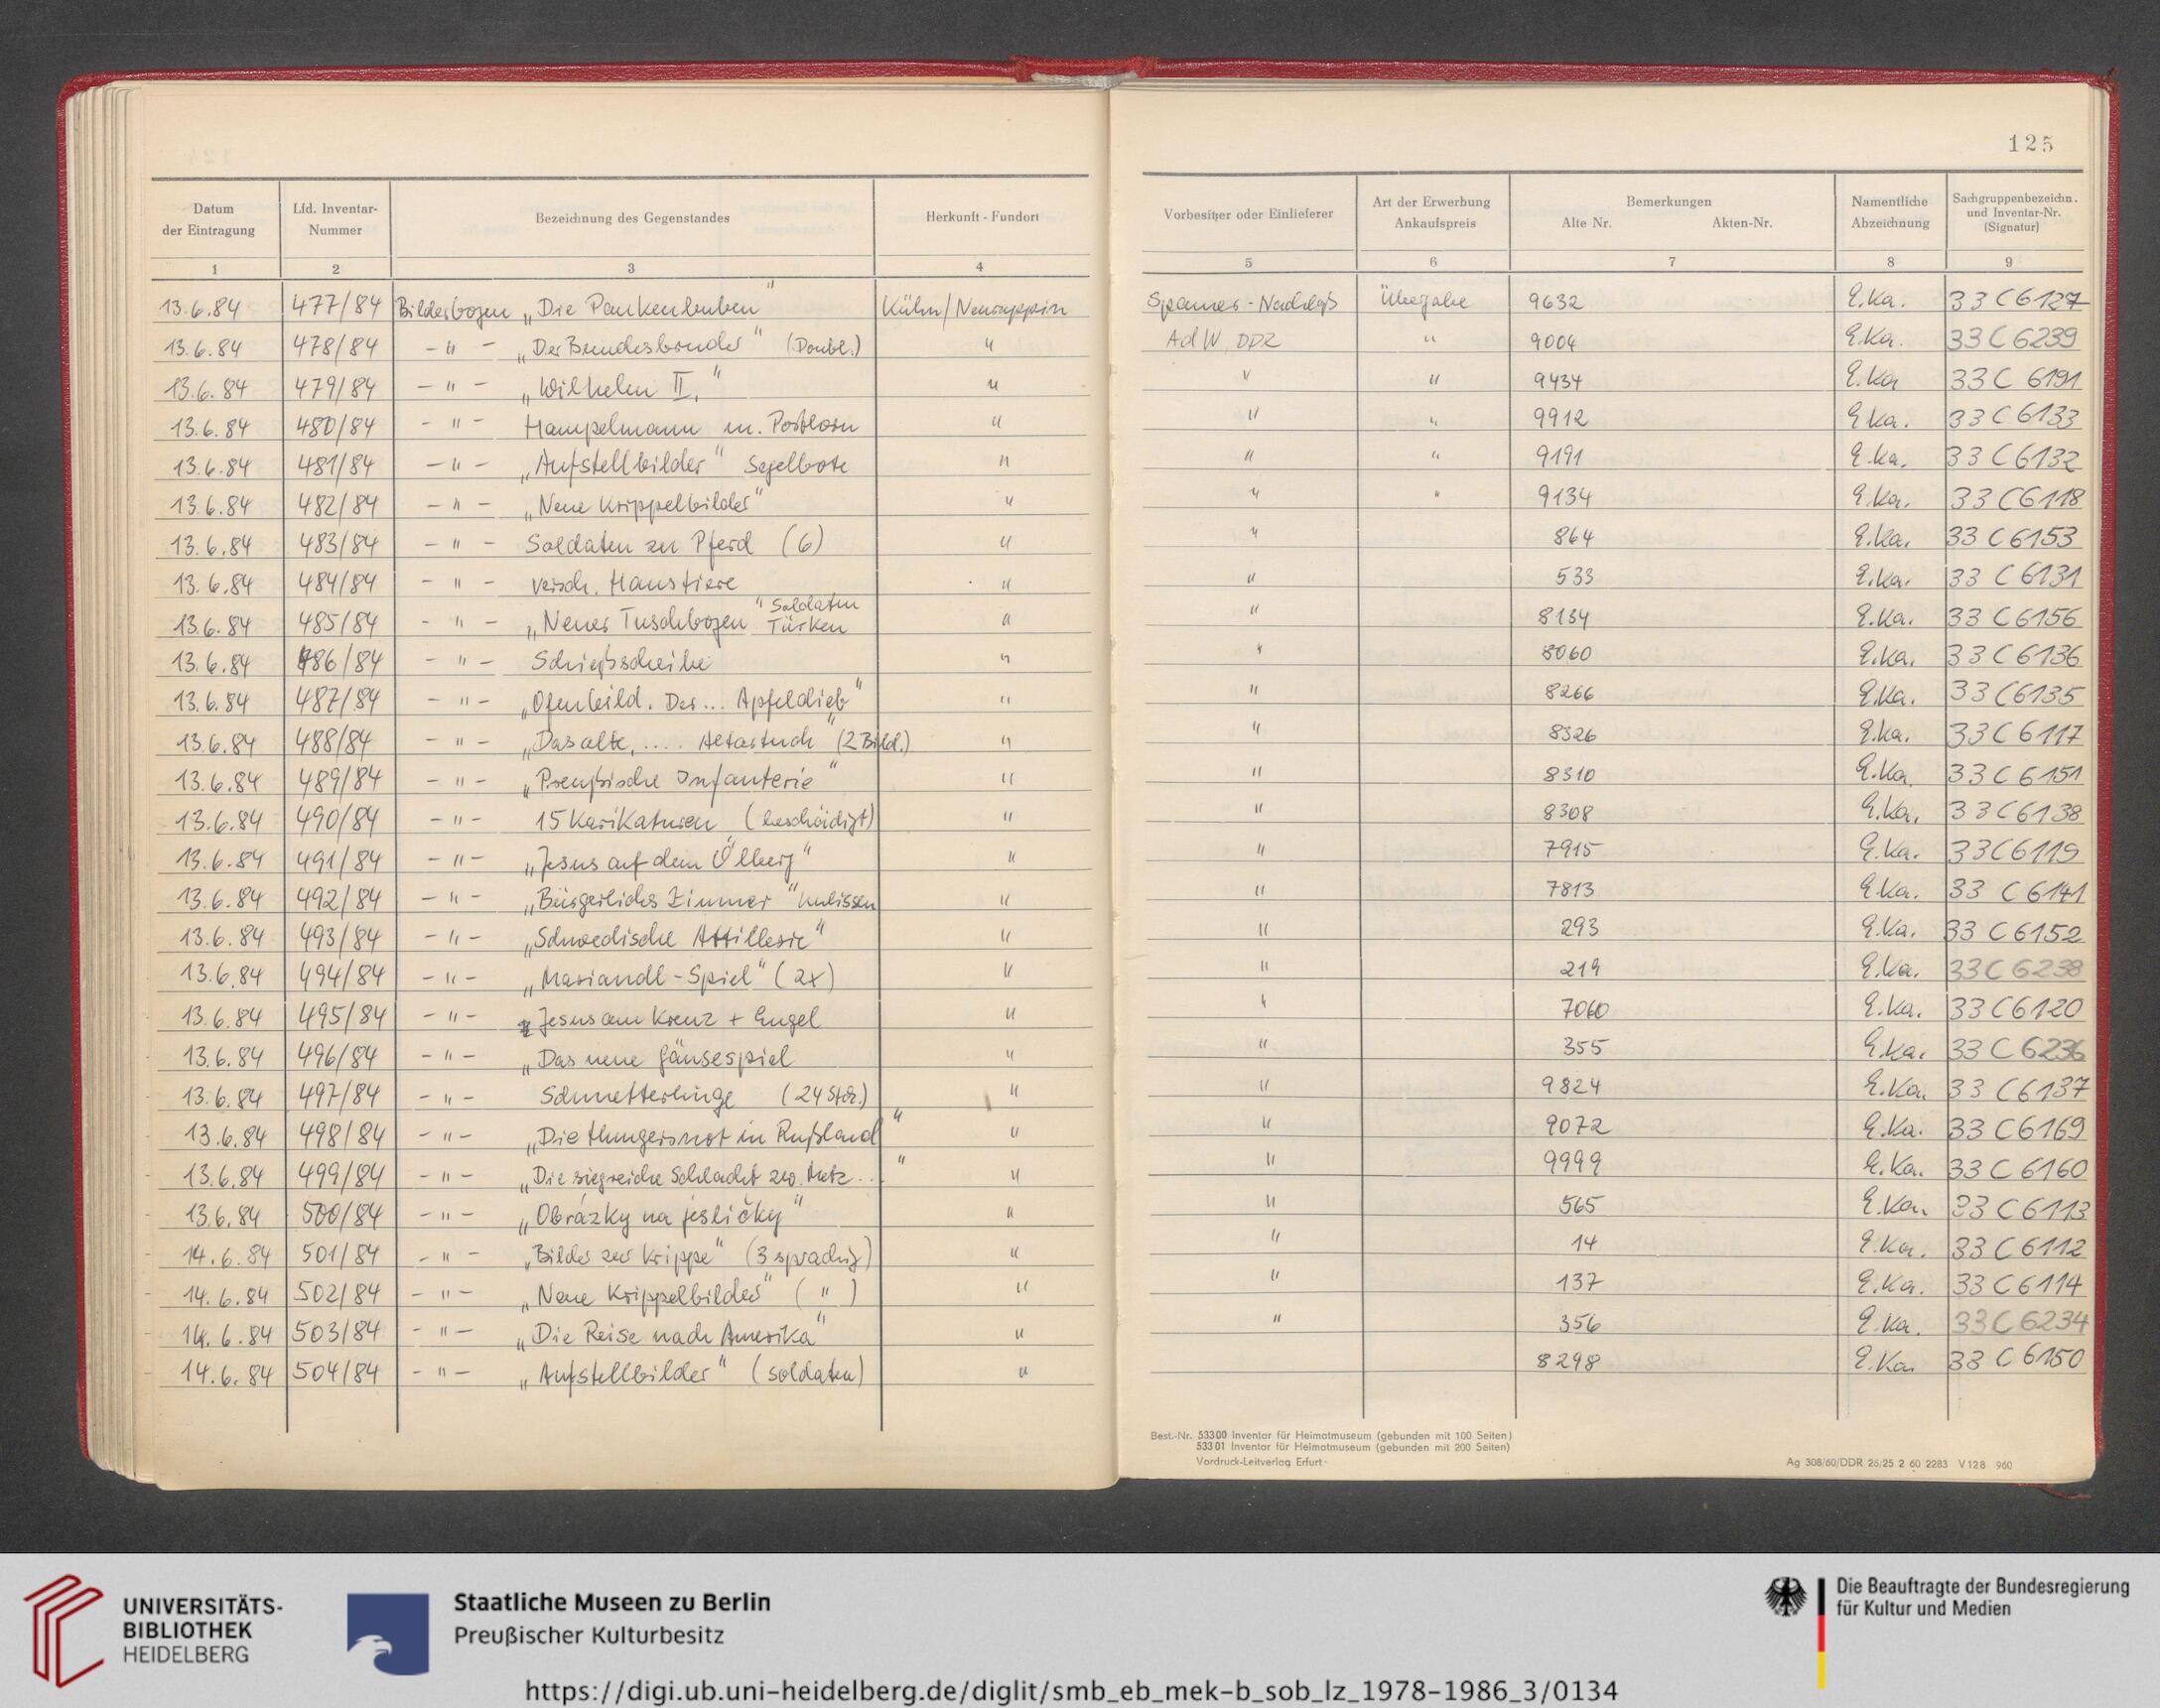 125
Datum der Eintragung | Lfd. Inventar-Nummer | Bezeichnung des Gegenstandes | Herkunft - Fundort | Vorbesitzer oder Einlieferer | Art der Erwerbung Ankaufspreis | Bemerkungen Alte Nr. Akten-Nr. | Namentliche Abzeichnung | Sachgruppenbezeichn. und Inventar-Nr. (Signatur)
1 | 2 | 3 | 4 | 5 | 6 | 7 | 8 | 9
13.6.84 | 477/84 | Bilderbogen „Die Paukenbuben" | Kühn/Neuruppin | Spamer-Nachlaß | Übergabe | 9632 | E.Ka. | 33 C 6127
13.6.84 | 478/84 | -"- „Der Bundesbruder" (Doubl.) | " | AdW DDR | " | 9004 | E.Ka. | 33 C 6239
13.6.84 | 479/84 | -"- „Wilhelm II." | " | " | " | 9434 | E.Ka | 33 C 6191
13.6.84 | 480/84 | -"- Hampelmann m. Posthorn | " | " | " | 9912 | E.Ka. | 33 C 6133
13.6.84 | 481/84 | -"- „Aufstellbilder" Segelbote | " | " | " | 9191 | E.Ka. | 33 C 6132
13.6.84 | 482/84 | -"- „Neue Krippelbilder" | " | " | " | 9134 | E.Ka. | 33 C 6118
13.6.84 | 483/84 | -"- Soldaten zu Pferd (6) | " | " | 864 | E.Ka. | 33 C 6153
13.6.84 | 484/84 | -"- versch. Haustiere | " | " | 533 | E.Ka. | 33 C 6131
13.6.84 | 485/84 | -"- „Neuer Tuschbogen" Soldaten Türken | " | " | 8134 | E.Ka. | 33 C 6156
13.6.84 | 486/84 | -"- Schießscheibe | " | " | 8060 | E.Ka. | 33 C 6136
13.6.84 | 487/84 | -"- „Ofenbild. Der ... Apfeldieb" | " | " | 8266 | E.Ka. | 33 C 6135
13.6.84 | 488/84 | -"- „Das alte, .... Altartuch" (2 Bild.) | " | " | 8326 | E.Ka. | 33 C 6117
13.6.84 | 489/84 | -"- „Preußische Infanterie" | " | " | 8310 | E.Ka. | 33 C 6151
13.6.84 | 490/84 | -"- 15 Karikaturen (beschädigt) | " | " | 8308 | E.Ka. | 33 C 6138
13.6.84 | 491/84 | -"- „Jesus auf dem Ölberg" | " | " | 7915 | E.Ka. | 33 C 6119
13.6.84 | 492/84 | -"- „Bürgerliches Zimmer" Kulissen | " | " | 7813 | E.Ka. | 33 C 6141
13.6.84 | 493/84 | -"- „Schwedische Artillerie" | " | " | 293 | E.Ka. | 33 C 6152
13.6.84 | 494/84 | -"- „Mariandl-Spiel" (2x) | " | " | 219 | E.Ka. | 33 C 6238
13.6.84 | 495/84 | -"- Jesus am Kreuz + Engel | " | " | 7060 | E.Ka. | 33 C 6120
13.6.84 | 496/84 | -"- „Das neue Gänsespiel | " | " | 355 | E.Ka. | 33 C 6236
13.6.84 | 497/84 | -"- Schmetterlinge (24 Stck.) | " | " | 9824 | E.Ka. | 33 C 6137
13.6.84 | 498/84 | -"- „Die Hungersnot in Rußland" | " | " | 9072 | E.Ka. | 33 C 6169
13.6.84 | 499/84 | -"- „Die siegreiche Schlacht zw. Metz..." | " | " | 9999 | E.Ka. | 33 C 6160
13.6.84 | 500/84 | -"- „Obrázky na jesličky" | " | " | 565 | E.Ka. | 33 C 6113
14.6.84 | 501/84 | -"- „Bilder zur Krippe" (3 sprachig) | " | " | 14 | E.Ka. | 33 C 6112
14.6.84 | 502/84 | -"- „Neue Krippelbilder" ( " ) | " | " | 137 | E.Ka. | 33 C 6114
14.6.84 | 503/84 | -"- „Die Reise nach Amerika" | " | " | 356 | E.Ka. | 33 C 6234
14.6.84 | 504/84 | -"- „Aufstellbilder" (Soldaten) | " | 8298 | E.Ka. | 33 C 6150
Best.-Nr. 53300 Inventar für Heimatmuseum (gebunden mit 100 Seiten)
53301 Inventar für Heimatmuseum (gebunden mit 200 Seiten)
Vordruck-Leitverlag Erfurt
Ag 308/60/DDR 26/25 2 60 2283 V128 960
UNIVERSITÄTS-
BIBLIOTHEK
HEIDELBERG
Staatliche Museen zu Berlin
Preußischer Kulturbesitz
Die Beauftragte der Bundesregierung
für Kultur und Medien
https://digi.ub.uni-heidelberg.de/diglit/smb_eb_mek-b_sob_lz_1978-1986_3/0134